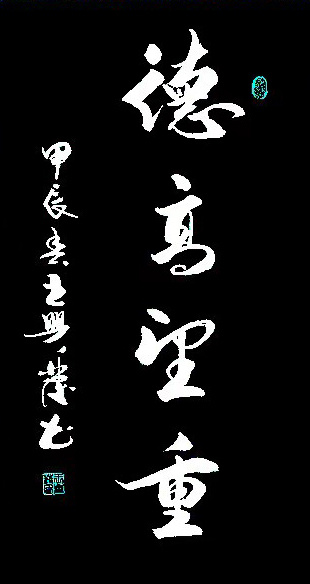 德高望重
甲辰春王興书